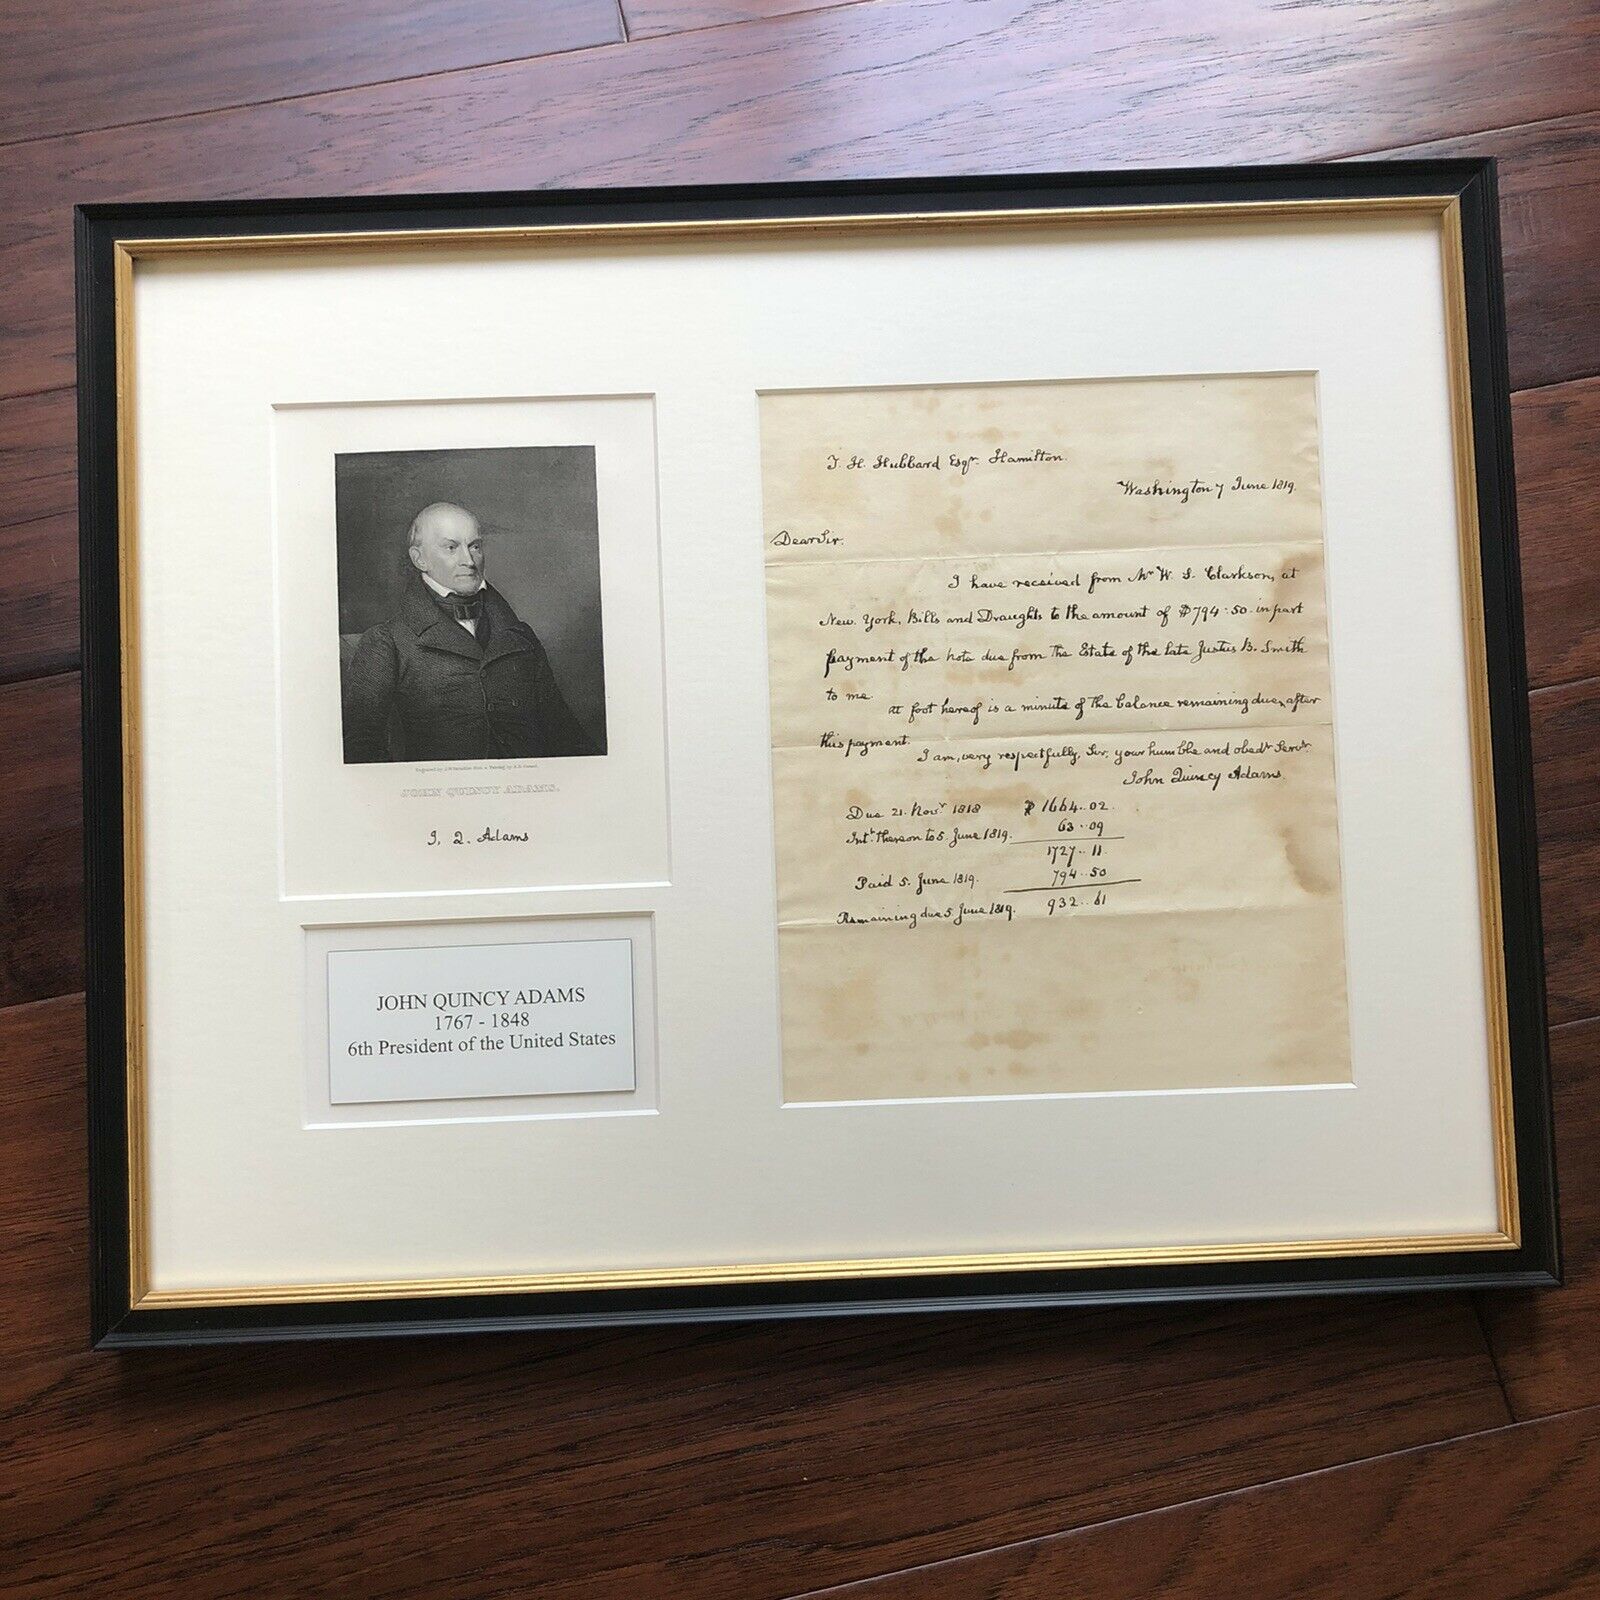 JOHN QUINCY ADAMS.
J. Q. Adams
JOHN QUINCY ADAMS
1767 - 1848
6th President of the United States
T. H. Hubbard Esqr. Hamilton.
Washington 7 June 1819.
Dear Sir.
I have received from Mr W. S. Clarkson, at
New. York, Bills and Draughts to the amount of $794.50. in part
payment of the note due from the Estate of the late Justus B. Smith
to me.
At foot hereof is a minute of the balance remaining due, after
this payment.
I am, very respectfully, Sir, your humble and obedt Servt.
John Quincy Adams.
Due 21. Novr 1818 $1664..02.
Intt. thereon to 5. June 1819. 63..09
1727..11.
Paid 5. June 1819. 794..50
Remaining due 5. June 1819. 932..61